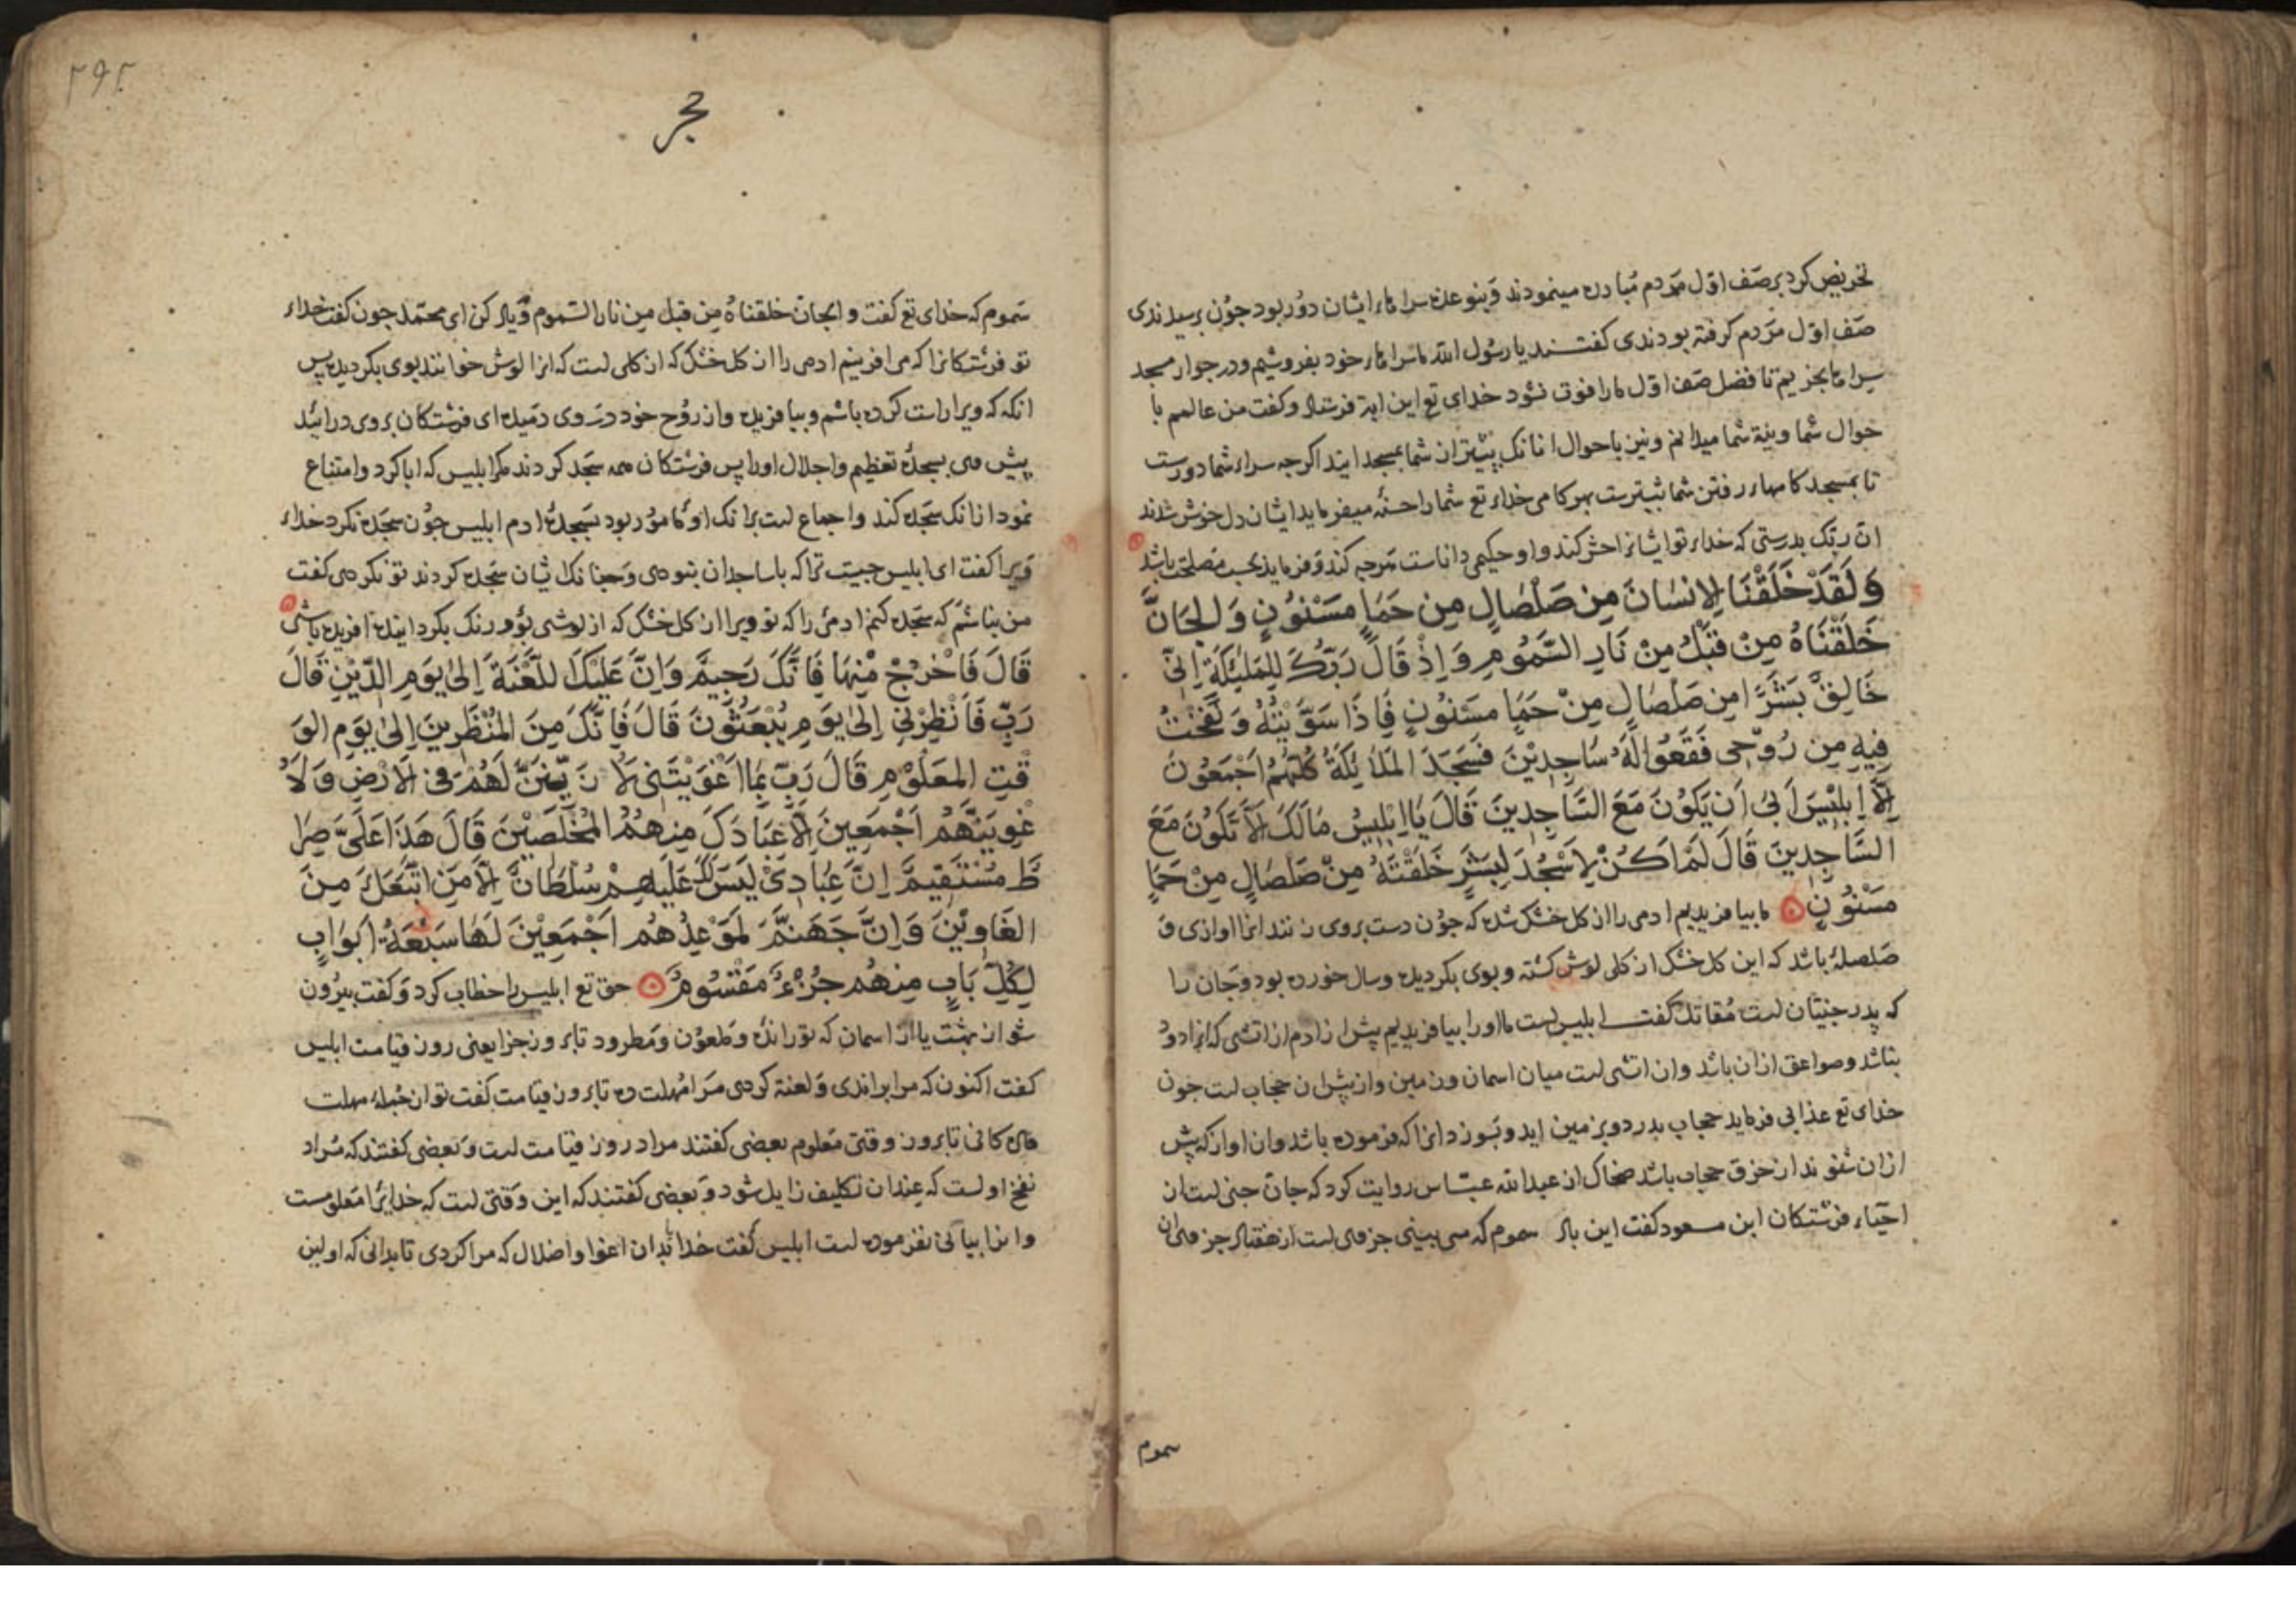 تحریض کرد بر صف اول مردم مبادره مینمودند و بنو عذره سراهاء ایشان دور بود جون برسیدندی
صف اول مردم کرفته بودندی کفتند یا رسول الله ما سراهاء خود بفروشیم و در جوار مسجد
سراها بخریم تا فضل صف اول مارا فوت نشود خدای تع این ایة فرستاد و کفت من عالمم با
حوال شما و بنیة شما میدانم و نیز باحوال انانک پیشتر از شما بمسجد ایند اکرجه سراء شما دورست
تا بمسجد کامهاء رفتن شما بیشترست بهر کامی خداء تع شما را حسنة میفرماید ایشان دل خوش شدند
ان ربک بدرستی که خداء تو ایشانرا حشر کند و او حکیمی داناست هرجه کند و فرماید بحسب مصلحت باشد
وَلَقَدْ خَلَقْنَا الِانسَانَ مِن صَلْصَالٍ مِن حَمَاٍ مَسْنُونٍ وَالجَانَّ
خَلَقْنَاهُ مِنْ قَبْلُ مِنْ نَارِ السَّمُومِ وَاِذْ قَالَ رَبُّكَ لِلمَلٰئِكَةِ اِنّي
خَالِقٌ بَشَرًا مِن صَلْصَالٍ مِنْ حَمَاٍ مَسْنُونٍ فَاِذَا سَوَّيْتُهُ وَنَفَخْتُ
فِيهِ مِن رُوحِى فَقَعُوا لَهُ سَاجِدِيْنَ فَسَجَدَ المَلَائِكَةُ كُلُّهُمْ اَجْمَعُونَ
اِلَّا اِبلِيْسَ اَبىٰ اَن يَكُونَ مَعَ السَّاجِدِينَ قَالَ يَا اِبْلِيسُ مَالَكَ اَلَّا تَكُونَ مَعَ
السَّاجِدِينَ قَالَ لَمْ اَكُنْ لِاَسْجُدَ لِبَشَرٍ خَلَقْتَهُ مِنْ صَلْصَالٍ مِنْ حَمَاٍ
مَسْنُونٍ ما بیافریدیم ادمی را از کل خشک شده که جون دست بروی زنند انرا اوازی و
صلصلهٔ باشد که این کل خشک از کلی لوش کشته و بوی بکردیده و سال خورده بود و جان را
که پدر جنیان است مقاتل کفت ابلیس است ما او را بیافریدیم پیش از ادم از اتشی که انرا دود
نباشد و صواعق ازان باشد و ان اتشی است میان اسمان و زمین و از پیش ان حجاب است جون
خدای تع عذابی فرماید حجاب بدرد و بر زمین اید و بسوزد انرا که فرموده باشد و ان اواز که پیش
ازان شنوند از خرق حجاب باشد ضحاک از عبدالله عباس روایت کرد که جان جنی است از
احیاء فرشتکان ابن مسعود کفت این باد سموم که می بینی جزوی است از هفتاد جزو از
سموم
۲۹۲
حجر
سموم که خدای تع کفت و الجان خلقناه من قبل من نار السموم و یاد کن ای محمد جون کفت خداء
تو فرشتکانرا که می افرینم ادمی را از کل خشک که از کلی است که انرا لوش خوانند بوی بکردیده پس
انکه که ویرا راست کرده باشم و بیافریده و از روح خود در وی دمیده ای فرشتکان بروی درائید
پیش وی بسجدهٔ تعظیم و اجلال او را پس فرشتکان همه سجده کردند مکر ابلیس که ابا کرد و امتناع
نمود ازانک سجده کند و اجماع است برانک او مامور بود بسجدهٔ ادم ابلیس جون سجده نکرد خداء
ویرا کفت ای ابلیس جیست ترا که با ساجدان نبودی و جنانک ایشان سجده کردند تو نکردی کفت
من نباشم که سجده کنم ادمی را که تو ویرا از کل خشک که از لوشی بو و رنک بکردانیده افریده باشی
قَالَ فَاخْرُجْ مِنْهَا فَاِنَّكَ رَجِيمٌ وَاِنَّ عَلَيْكَ اللَّعْنَةَ اِلىٰ يَومِ الدِّيْنِ قَالَ
رَبِّ فَاَنْظِرْنِي اِلىٰ يَومِ يُبْعَثُونَ قَالَ فَاِنَّكَ مِنَ المُنْظَرِينَ اِلىٰ يَومِ الوَ
قْتِ المَعلُومِ قَالَ رَبِّ بِمَا اَغْوَيْتَنِى لَاُزَيِّنَنَّ لَهُمْ فِى الاَرْضِ وَلَاُ
غْوِيَنَّهُمْ اَجْمَعِينَ اِلَّا عِبَادَكَ مِنهُمُ المُخْلَصِيْنَ قَالَ هَذَا عَلَىَّ صِرَا
طٌ مُسْتَقِيمٌ اِنَّ عِبَادِيْ لَيسَ لَكَ عَلَيهِمْ سُلطَانٌ اِلَّا مَنِ اتَّبَعَكَ مِنَ
الغَاوِيْنَ وَاِنَّ جَهَنَّمَ لَمَوْعِدُهُمْ اَجْمَعِيْنَ لَهَا سَبْعَةُ اَبوَابٍ
لِكُلِّ بَابٍ مِنهُم جُزْءٌ مَقْسُومٌ حق تع ابلیس را خطاب کرد و کفت بیرون
شو از بهشت یا از اسمان که تو رانده و ملعون و مطرود تا بروز جزا یعنی روز قیامت ابلیس
کفت اکنون که مرا براندی و لعنة کردی مرا مهلت ده تا بروز قیامت کفت تو از جملهٔ مهلت
دادکانی تا بروز وقتی معلوم بعضی کفتند مراد روز قیامت است و بعضی کفتند که مراد
نفخ اولست که عندان تکلیف زایل شود و بعضی کفتند که این وقتی است که خدایرا معلومست
و انرا بیانی نفرموده است ابلیس کفت خدایا بدان اغوا و اضلال که مرا کردی تا بدانی که اولین